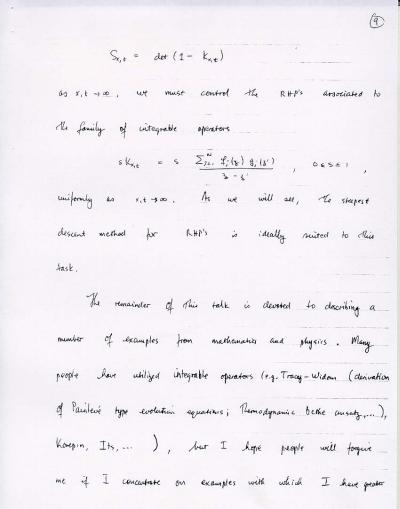 9
S_{x,t} = det (1 - K_{x,t})
as x,t → ∞, we must control the RHP's associated to
the family of integrable operators
s K_{x,t} = s \frac{\sum_{j=1}^{N} f_j(z) g_j(z')}{z - z'} , 0 ≤ s ≤ 1 ,
uniformly as x,t → ∞. As we will see, the steepest
descent method for RHP's is ideally suited to this
task.
The remainder of this talk is devoted to describing a
number of examples from mathematics and physics. Many
people have utilized integrable operators (e.g. Tracy-Widom (derivation
of Painlevé type evolution equations; Thermodynamic Bethe ansatz,...),
Korepin, Its,... ), but I hope people will forgive
me if I concentrate on examples with which I have greater